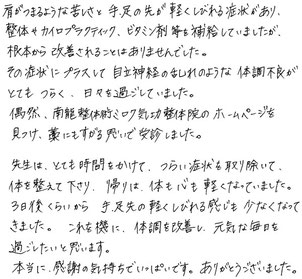 肩がつまるような苦しさと手、足の先が軽くしびれる症状があり、
整体やカイロプラクティック、ビタミン剤等を補給していましたが、
根本から改善されることはありませんでした。
その症状にプラスして自立神経の乱れのような体調不良が
とてもつらく、日々を過ごしていました。
偶然、南龍整体術ミロク気功整体院のホームページを
見つけ、藁にもすがる思いで受診しました。
先生は、とても時間をかけて、つらい症状を取り除いて、
体を整えて下さり、帰りは、体も心も軽くなっていました。
3日後くらいから手足先の軽くしびれる感じも少なくなって
きました。これを機に、体調を改善し、元気な毎日を
過ごしたいと思います。
本当に、感謝の気持ちでいっぱいです。ありがとうございました。